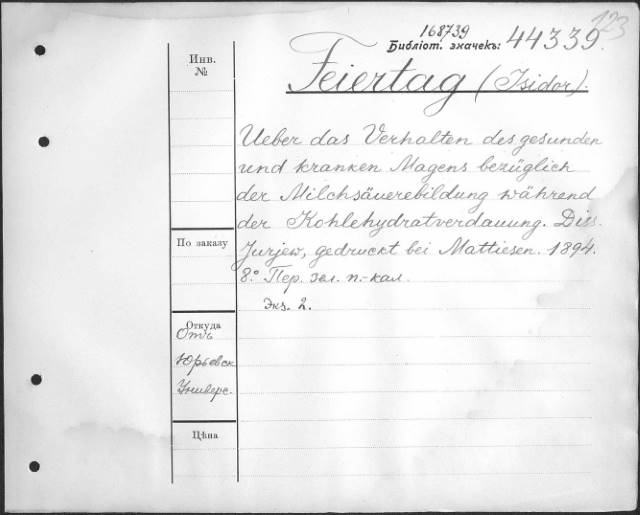 123
168739
Библіот. значекъ: 44339
Инв.
№
Feiertag (Isidor).
Ueber das Verhalten des gesunden
und kranken Magens bezüglich
der Milchsäuerebildung während
der Kohlehydratverdauung. Diss.
Jurjew, gedruckt bei Mattiesen. 1894.
8.° Пер. зел. п.-кал.
Экз. 2.
По заказу
Откуда
Отъ
Юрьевск
Универс.
Цѣна